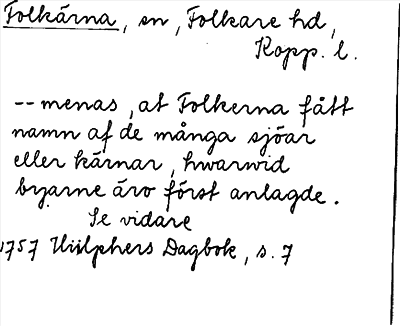 Folkärna, sn, Folkare hd,
Kopp. l.
-- menas, at Folkerna fått
namn af de många sjöar
eller kärnar, hwarwid
byarne äro först anlagde.
Se vidare
1757 Hülphers Dagbok, s. 7